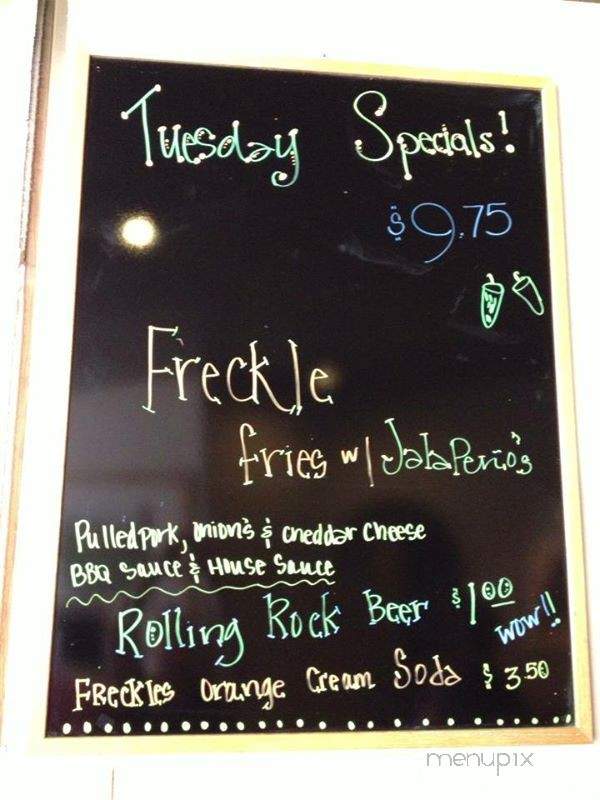 Tuesday Specials!
$9.75
Freckle
fries w/ Jalapeño's
Pulled pork, onion's & cheddar cheese
BBQ Sauce & House Sauce
Rolling Rock Beer $1.00
wow!!
Freckles Orange Cream Soda $3.50
menupix